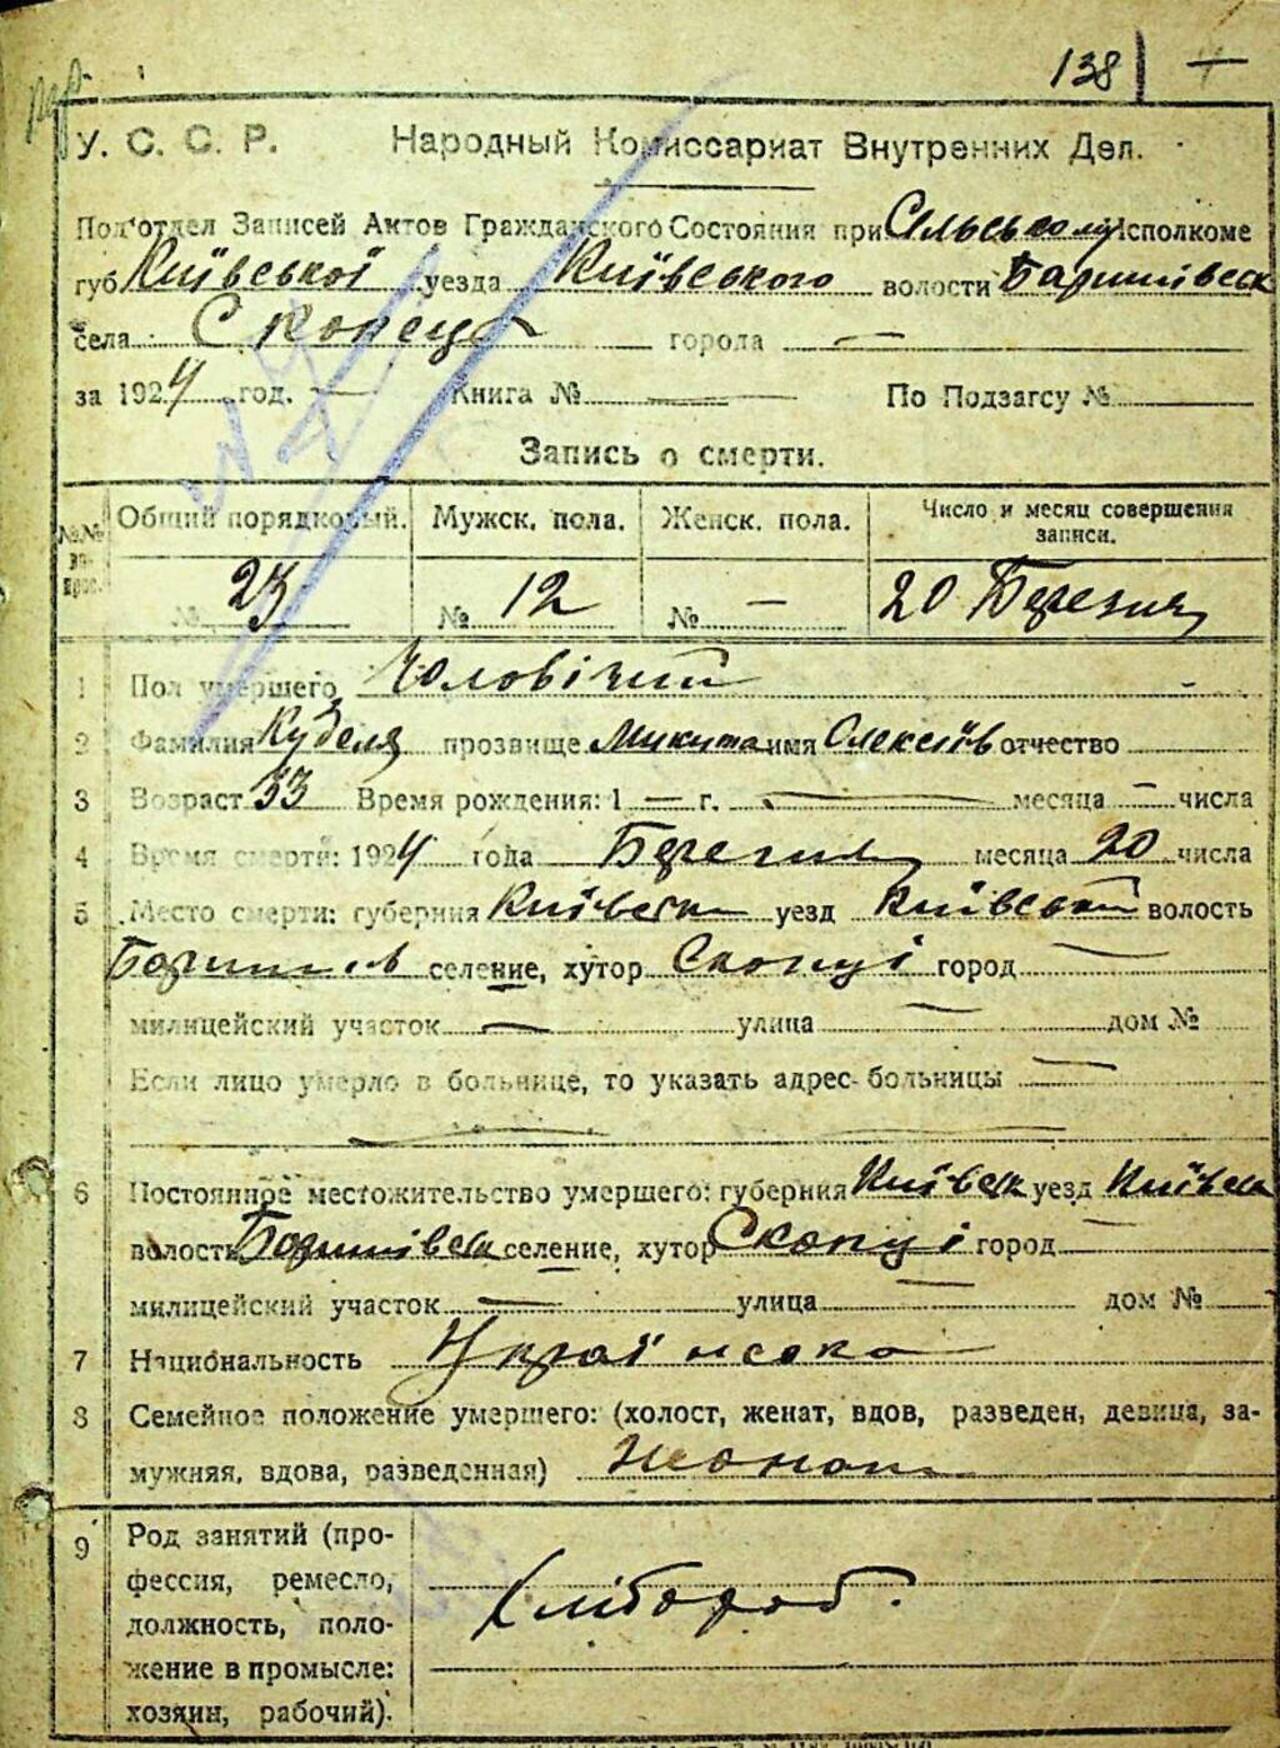 138
У. С. С. Р. Народный Комиссариат Внутренних Дел.
Под'отдел Записей Актов Гражданского Состояния при Сільському Исполкоме
губ Київської уезда Київського волости Баришівськ
села Скопец города —
за 1924 год. — Книга № — По Подзагсу №
Запись о смерти.
№№ Общий порядковый. Мужск. пола. Женск. пола. Число и месяц совершения
записи.
№ 23 № 12 № — 20 Березня
1 Пол умершего Чоловічий
2 Фамилия Куделя прозвище Микита имя Олексіїв отчество
3 Возраст 33 Время рождения: 1 — г. — месяца — числа
4 Время смерти: 1924 года Березня месяца 20 числа
5 Место смерти: губерния Київськ уезд Київський волость
Баришів селение, хутор Скопці город —
милицейский участок — улица — дом №
Если лицо умерло в больнице, то указать адрес больницы —
6 Постоянное местожительство умершего: губерния Київськ уезд Київськ
волость Баришівськ селение, хутор Скопці город —
милицейский участок — улица — дом №
7 Национальность Українська
8 Семейное положение умершего: (холост, женат, вдов, разведен, девица, за-
мужняя, вдова, разведенная) Жонат
9 Род занятий (про-
фессия, ремесло,
должность, поло-
жение в промысле:
хозяин, рабочий).
Хлібороб.